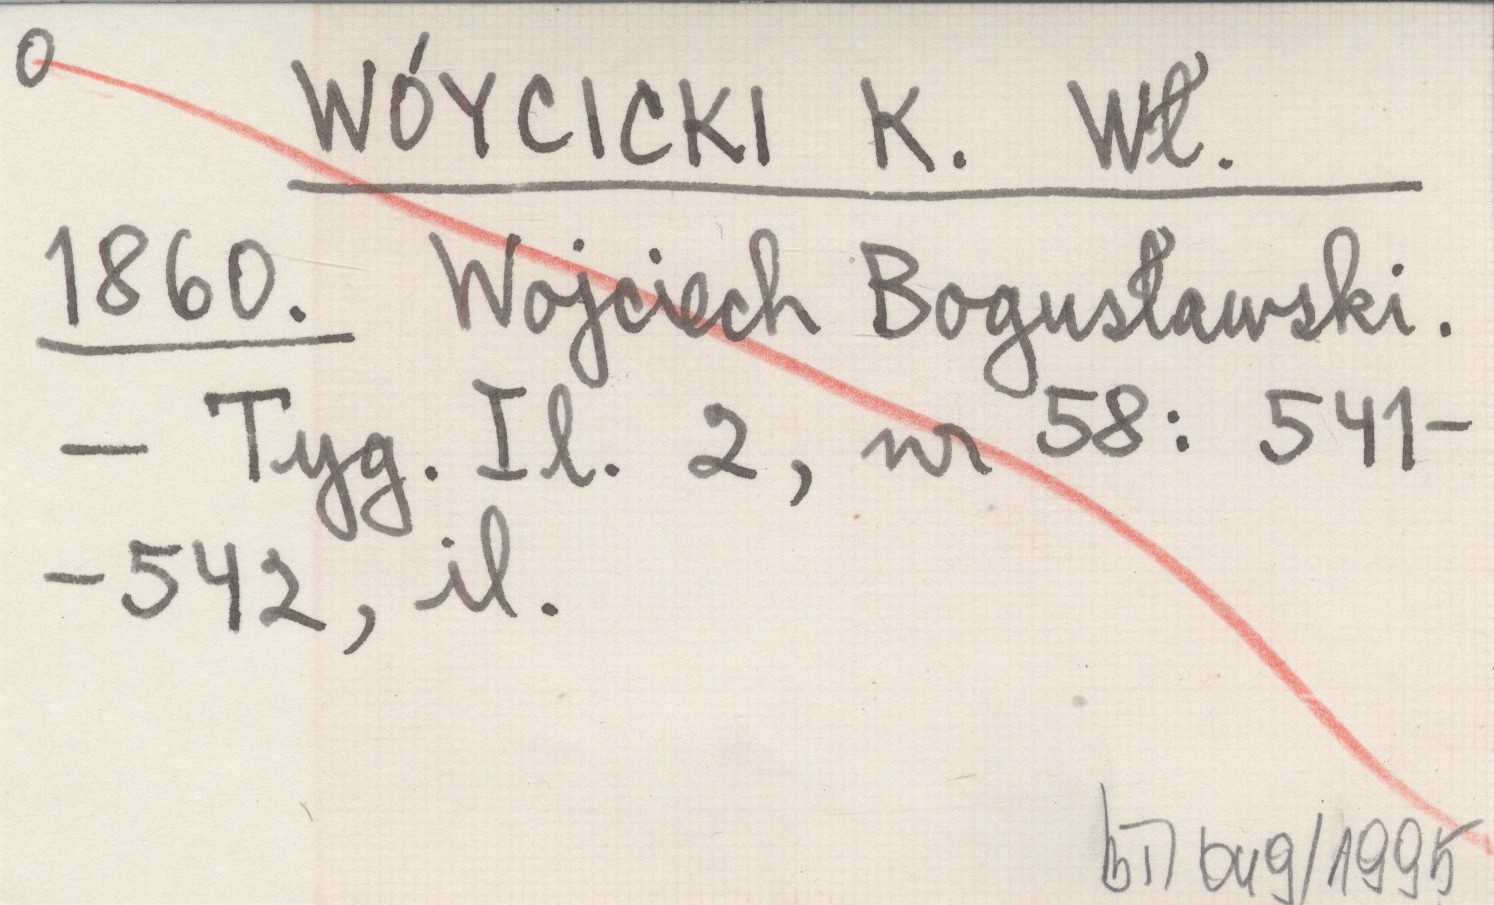 O
WÓYCICKI K. Wł.
1860. Wojciech Bogusławski.
— Tyg. Il. 2, nr 58: 541-
-542, il.
/1995